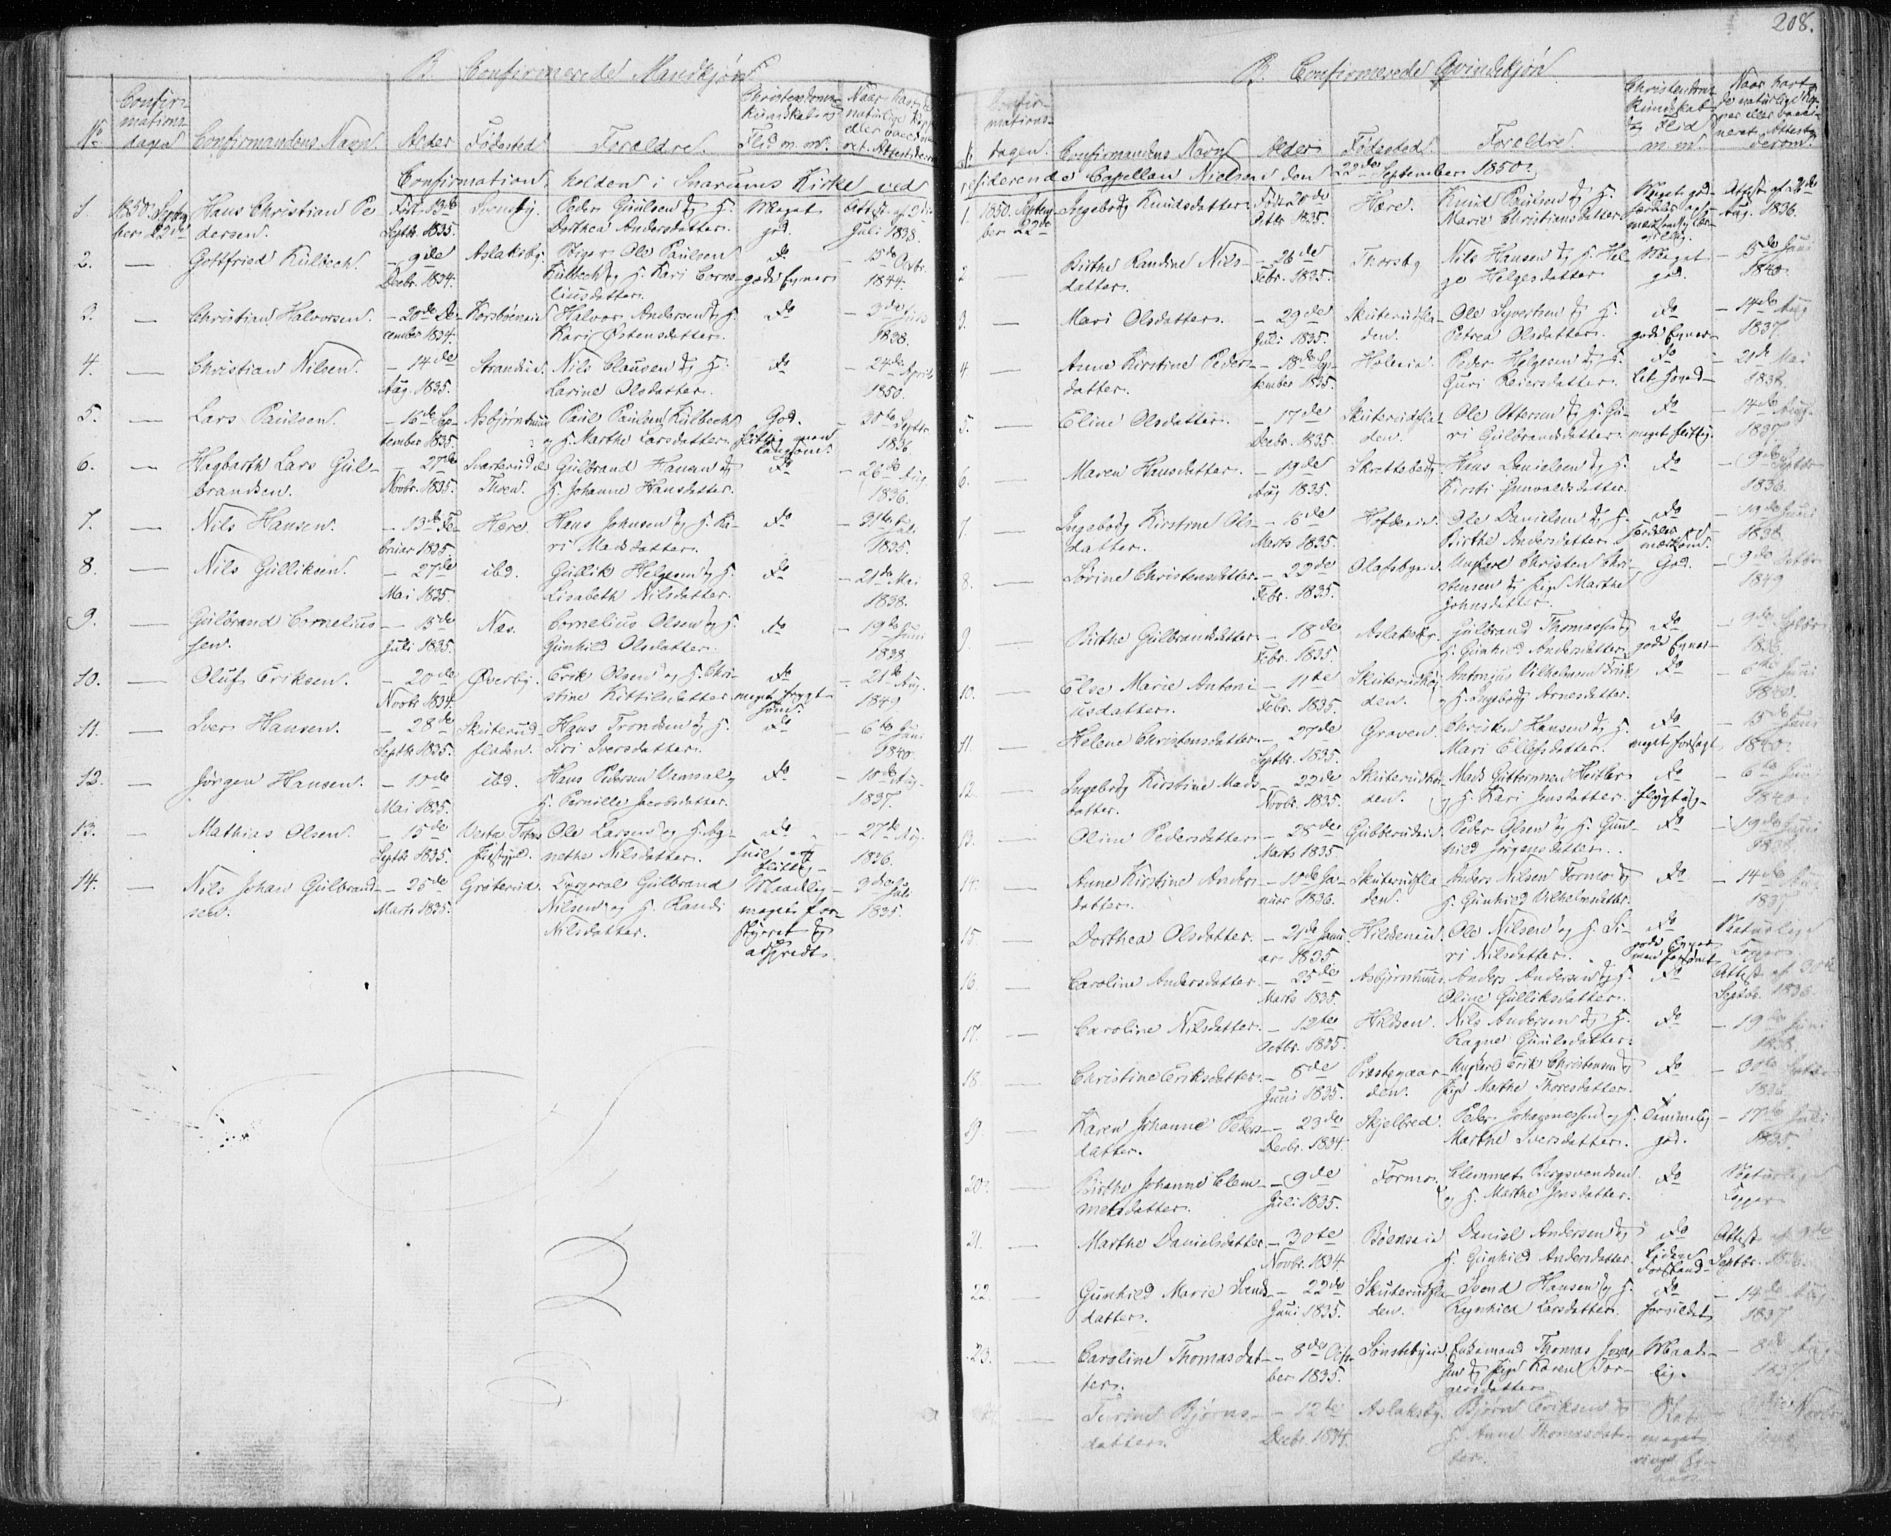 208.
B. Confirmerede Mandkjøn.
No
Confirmations dagen
Confirmandens Navn.
Alder
Fødested
Forældre.
Christendoms Kundskab og Flid m. m.
Confirmation, holden i Snarums Kirke ved
1 1850 Septbr. 22de Hans Christian Pedersen. Født 13de Septbr. 1835. Svensby. Peder Guulsen og H. Dorthea Andersdatter. Meget god. Juli 1838.
2. — Gottfried Külbech. — 9de Decbr. 1834. Aslaksby. Ole Paulsen Külbech og H. Kari Corneliusdatter. do gode Evner — 15de Octbr. 1844.
3. — Christian Halvorsen. — 20de December 1834. Halvor Andersen og H. Kari Østensdatter. do 1838.
4. — Christian Nilsen. — 14de Aug. 1835. Stranden. Nils Clausen og H. Larine Olsdatter. do — 24de April 1850.
5. — Lars Paulsen. — 16de September 1835. Paul Paulsen Külbech og H. Marthe Larsdatter. God. flittig men langsom. — 30te Septbr. 1836
6. — Hagbarth Lars Gulbrandsen. — 27de Novbr. 1835. Gulbrand Hansen og H. Johanne Hansdatter. do — 26de Aug. 1836.
7. — Nils Hansen. — 13de Februar 1835. Hære. Hans Johnsen og H. Kari Madsdatter. do — 31te Juli 1835.
8. — Nils Gulliksen. — 27de Mai 1835 ibd. Gullik Helgesen og H. Lisabeth Nilsdatter. do — 21de Mai 1838.
9. — Gulbrand Corneliussen. — 15de Juli 1835. Næs. Cornelius Olsen og H. Gunhild Olsdatter. do — 19de Juni 1838
10. — Oluf Eriksen. — 20de Novbr 1834. Øverby. Erik Olsen og H. Christine Kittilsdatter. do meget frygtsom. — 21de Aug. 1849
11. — Iver Hansen. — 28de Septbr 1835. Skuterudfladen. Hans Trondsen og H. Siri Iversdatter. do — 6te Juni 1840.
12. — Jørgen Hansen. — 10de Mai 1835. ibd. Hans Pedersen og H. Pernille Jacobsdatter. do — 10de Aug. 1837.
13. — Mathias Olsen. — 15de Septbr 1835. Ole Larsen og H. Agnethe Nilsdatter. do flittig — 27de Aug. 1836.
14. — Nils Johan Gulbrandsen. — 25de Marts 1835. Grøterud. Corporal Gulbrand Nilsen og H. Randi Nilsdatter. Maadelig meget forstyrret og adspredt. Juli 1835.
B. Confirmerede Qvindekjøn.
Confirmations dagen.
Confirmandens Navn
Alder
Fødested.
Forældre.
Christendoms Kundskab og Flid m. m.
residerende Capellan Nielsen den 22de September 1850.
1. 1850. September 22de Ingeborg Knudsdatter. Født 20de Octbr. 1835. Hære. Knud Paulsen og H. Marie Christiansdatter. Meget god Attest af Aug. 1836.
2 — Birthe Randine Nilsdatter. — 26de Febr. 1835. Thorsby Nils Hansen og H. Helge Helgesdatter. Meget god. — 15de Juni 1840.
3. — Mari Olsdatter. — 29de Juli 1835. Skuterudfladen. Ole Syvertsen og H. Petrea Olsdatter. do gode Evner — 14de Aug 1837
4 — Anne Kirstine Pedersdatter. — 18de September 1835 Peder Helgesen og H. Guri Reiersdatter. do — 21de Mai 1838.
5. — Eline Olsdatter. — 17de Decbr. 1835. Skuterudfladen. Ole Ottersen og H. Guri Gulbrandsdatter. do meget flittig. — 14de Aug. 1837
6. — Maren Hansdatter. — 19de Aug 1835. Hans Danielsen og H. Kirsti Gunvaldsdatter. do — 9de Septbr 1836.
7. — Ingeborg Kirstine Olsdatter. — 6de Marts 1835. Ole Danielsen og H. Birthe Andersdatter. do — 19de Juni 1838
8. — Sørine Christensdatter. — 22de Febr. 1835. Olafsbyen. Ungkarl Christen Christensen og Pige Marthe Johnsdatter. God. — 9de Octbr 1849
9 — Birthe Gulbrandsdatter. — 18de Febr. 1835. Aslaksby. Gulbrand Thomassen og H. Gunhild Andersdatter. do gode Evner. — 9de Septbr 1836.
10. — Else Marie Antoniusdatter. — 11te Febr. 1835. Antonius Vilhelmsen og H. Ingeborg Arnesdatter. do — 6te Juni 1840.
11. — Helene Christensdatter. — 27de Septbr. 1835. Graven. Christen Hansen og H. Mari Ellefsdatter. do meget forsagt — 15de Juni 1840.
12. — Ingeborg Kirstine Madsdatter. — 22de Novbr. 1835. Mads Guttormsen og H. Kari Jensdatter. do flygtig — 6te Juni 1840.
13. — Oline Pedersdatter. — 28de Marts 1835. Peder Olsen og H. Gunhild Jørgensdatter. do — 19de Juni 1838
14. — Anne Kirstine Andersdatter. — 10de Januar 1836. Skuterudfladen. Anders Nilsen Formo og H. Gunhild Vilhelmsdatter. do — 14de Aug. 1837
15. — Dorthea Olsdatter. — 21de Januar 1835 Ole Nilsen og H. Siri Nilsdatter. do gode Evner men forsømt Naturlige Kopper
16. — Caroline Andersdatter. — 25de Marts 1835. Anders Andersen og H. Oline Gulliksdatter. do Attest af 30te Septbr. 1836.
17. — Caroline Nilsdatter. — 12te Octbr. 1835. Hildsen. Nils Andersen og H. Ragne Guulsdatter. do — 19de Juni 1838.
18. — Christine Eriksdatter. — 8de Juni 1835. Præstegaarden. Ungkarl Erik Christensen og Pige Marthe Thoresdatter. do — 30te Septbr 1836.
19. — Karen Johanne Pedersdatter. — 23de Decbr. 1834. Skjelbred. Peder Johannessen og H. Marthe Iversdatter. Temmelig god. — 17de Juli 1835.
20. — Birthe Johanne Clemmetsdatter. — 9de Juli 1835. Formo. Clemmet Bergsvendsen og H. Marthe Jensdatter. do Naturlige Kopper
21. — Marthe Danielsdatter — 30te Novbr. 1834. Daniel Andersen og H. Gunhild Andersdatter. do liden Forstand Attest af 9de Septbr. 1836
22. — Gunhild Marie Svendsdatter. — 22de Juni 1835. Skuterudfladen. Svend Hansen og H. Ragnhild Larsdatter. do — 14de Aug. 1837
23. — Caroline Thomasdatter. — 8de October 1835. Enkemand Thomas og Pige Karen Torgersdatter. Maadelig. — 8de Aug. 1837
— Turine Bjørnsdatter. — 12te Decbr. 1834. Aslaksby. Bjørn Eriksen og H. Anne Thomasdatter. meget ringe Evner